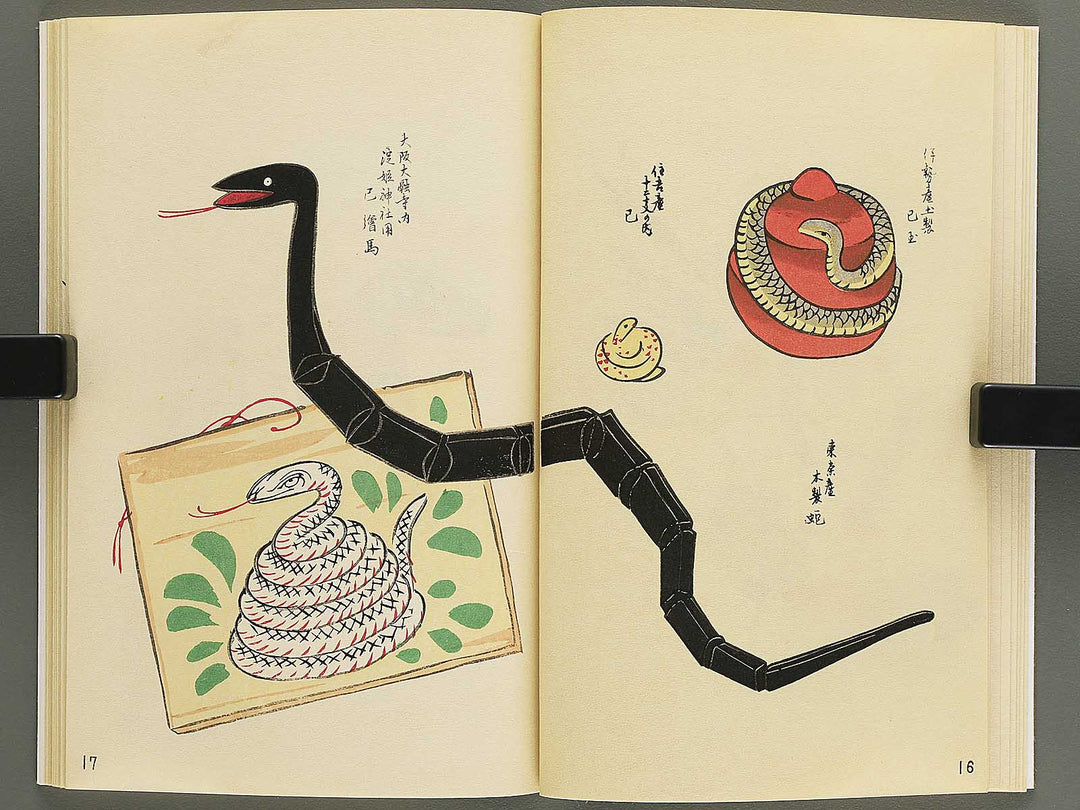 伊勢産土製
巳玉
住吉産
十二支の内
巳
東京産
木製蛇
16
大阪大融寺内
淀姫神社用
巳繪馬
17